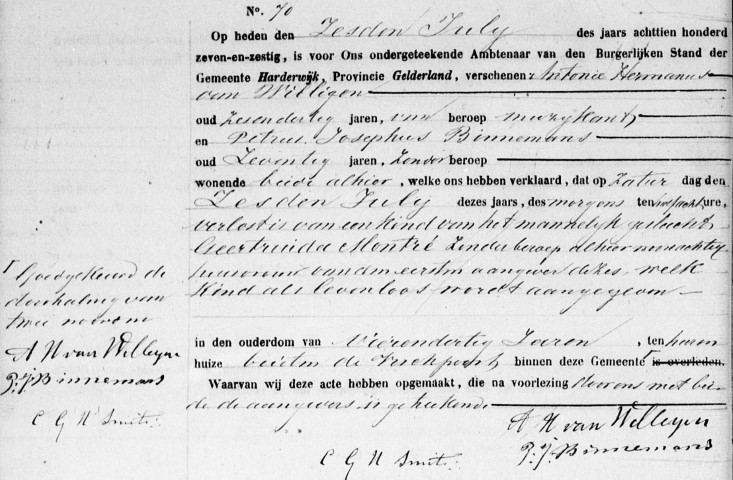 No. 70
Op heden den Zesden July des jaars achttien honderd
zeven-en-zestig, is voor Ons ondergeteekende Ambtenaar van den Burgerlijken Stand der
Gemeente Harderwijk, Provincie Gelderland, verschenen: Antonie Hermanus
van Willigen
oud Zesendertig jaren, van beroep muzykant
en Petrus Josephus Binnemans
oud Zeventig jaren, Zonder beroep
wonende beide alhier, welke ons hebben verklaard, dat op Zatur dag den
Zesden July dezes jaars, des morgens ten acht ure,
verlost is van een kind van het mannelyk geslacht,
Geertruida Montré Zonder beroep alhier woonachtig
huisvrouw van den eersten aangever dezes, welk
kind als levenloos wordt aangegeven
in den ouderdom van Vierendertig Jaren, ten haren
huize buiten de binnen deze Gemeente is overleden.
Waarvan wij deze acte hebben opgemaakt, die na voorlezing door ons met bei-
de de aangevers is geteekend
A H van Willegen
P. J. Binnemans
C G H Smits.
Goedgekeurd de
doorhaling van
twee woorden
A H van Willegen
P. J. Binnemans
C G H Smits.